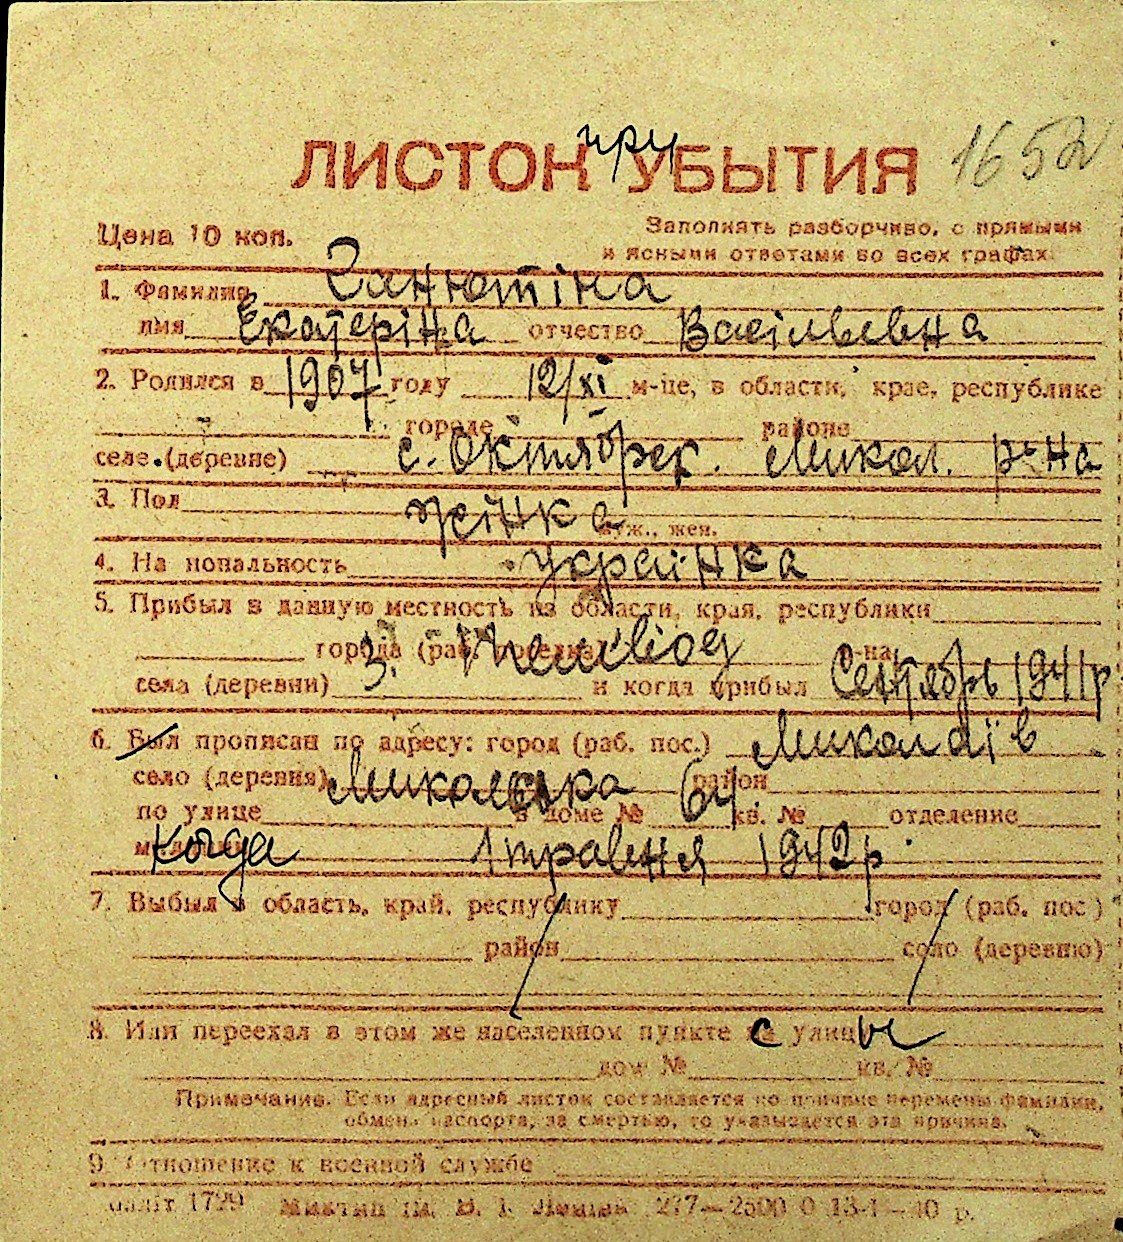 ЛИСТОК при УБЫТИЯ 1652
Цена 10 коп. Заполнять разборчиво, с прямыми
и ясными ответами во всех графах
1. Фамилия Ханютіна
имя Екатеріна отчество Васільевна
2. Родился в 1907 году 12/XI м-це, в области, крае, республике
городе районе
селе (деревне) с. Октябрск. Микол. р-на
3. Пол жінка муж., жен.
4. Национальность українка
5. Прибыл в данную местность из области, края, республики
города (раб. поселка) р-на
села (деревни) З. и когда прибыл Сентябрь 1941 р
6. Был прописан по адресу: город (раб. пос.) Миколаїв
село (деревня) район
по улице Микольська в доме № 64. кв. № отделение
милиции Когда 1 травня 1942 р.
7. Выбыл в область, край, республику город (раб. пос)
район село (деревню)
8. Или переехал в этом же населенном пункте с улицы
дом № кв. №
Примечание. Если адресный листок составляется по причине перемены фамилии,
обмена паспорта, за смертью, то указывается эта причина.
9. Отношение к военной службе
1799 277—2500 0 13-І—40 р.